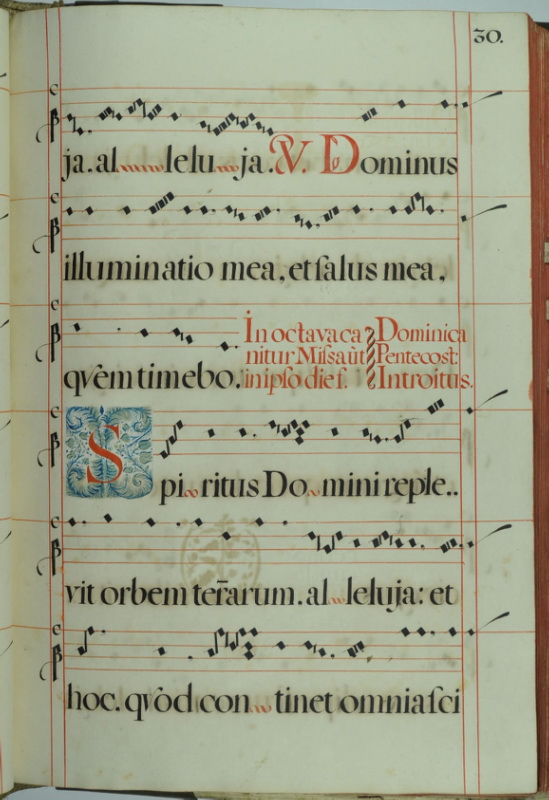 30.
ja. al lelu ja. V. Dominus
illuminatio mea, et salus mea,
In octava ca
nitur Missa ut
in ipso die f.
Dominica
Pentecost:
Introitus.
qvem timebo.
Spi ritus Do mini reple..
vit orbem terrarum. al leluja: et
hoc. qvod con tinet omnia sci